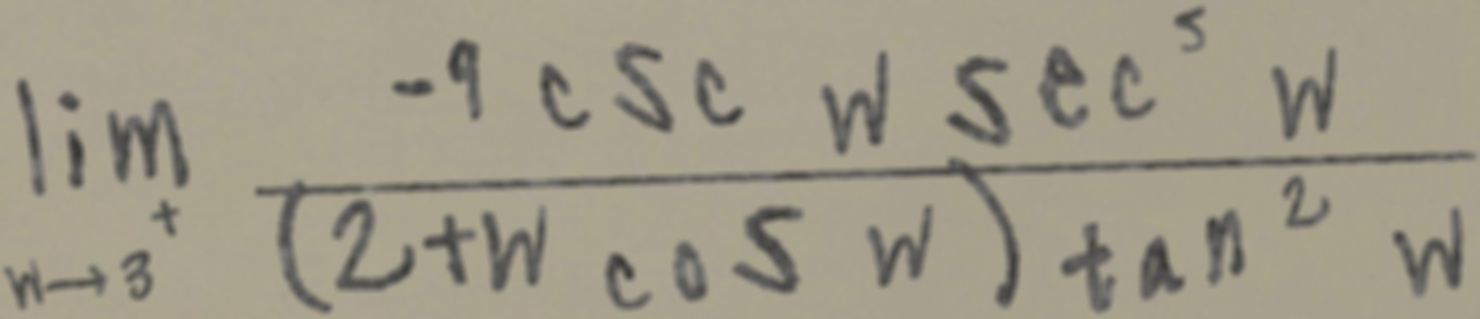 \lim_{w \to 3^+} \frac{-9 \csc w \sec^5 w}{(2+w \cos w) \tan^2 w}